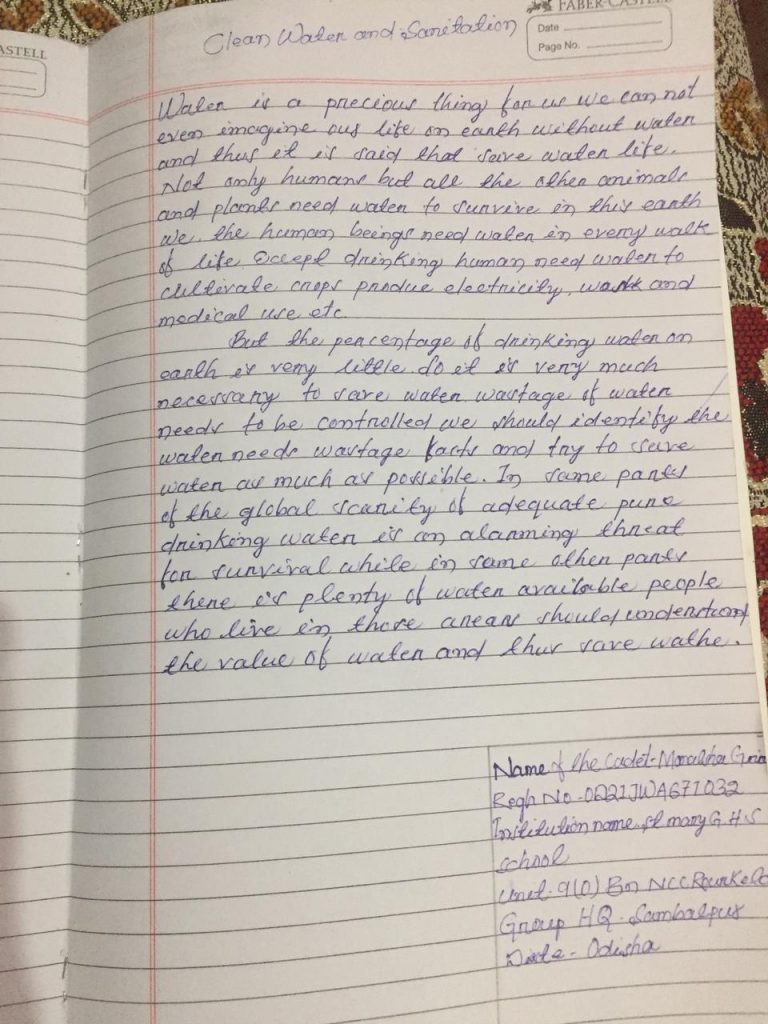 ASTELL
FABER-CASTELL
Date
Page No.
Clean Water and Sanitation
Water is a precious thing for us we can not
even imagine ous life on earth without water
and thus it is said that save water life.
Not only humans but all the other animals
and plants need water to survive in this earth
we, the human beings need water in every walk
of life Occept drinking human need water to
cultivate crops produe electricity, wash and
medical use etc.
But the percentage of drinking water on
earth is very little. So it is very much
necessary to save water wastage of water
needs to be controlled we should identify the
water needs wastage facts and try to save
water as much as possible. In same parts
of the global scanity of adequate pure
drinking water is an alarming threat
for survival while in same other parts
there is plenty of water available people
who live in those arears should understand
the value of water and thus save wathe.
Name of the Cadet - Monalisha
Regh No - OD21JWA671032
Institution name. St mary G.H.S
school
Unit - 9(O) Bn NCC Rourkela
Group HQ - Sambalpur
Diste - Odisha